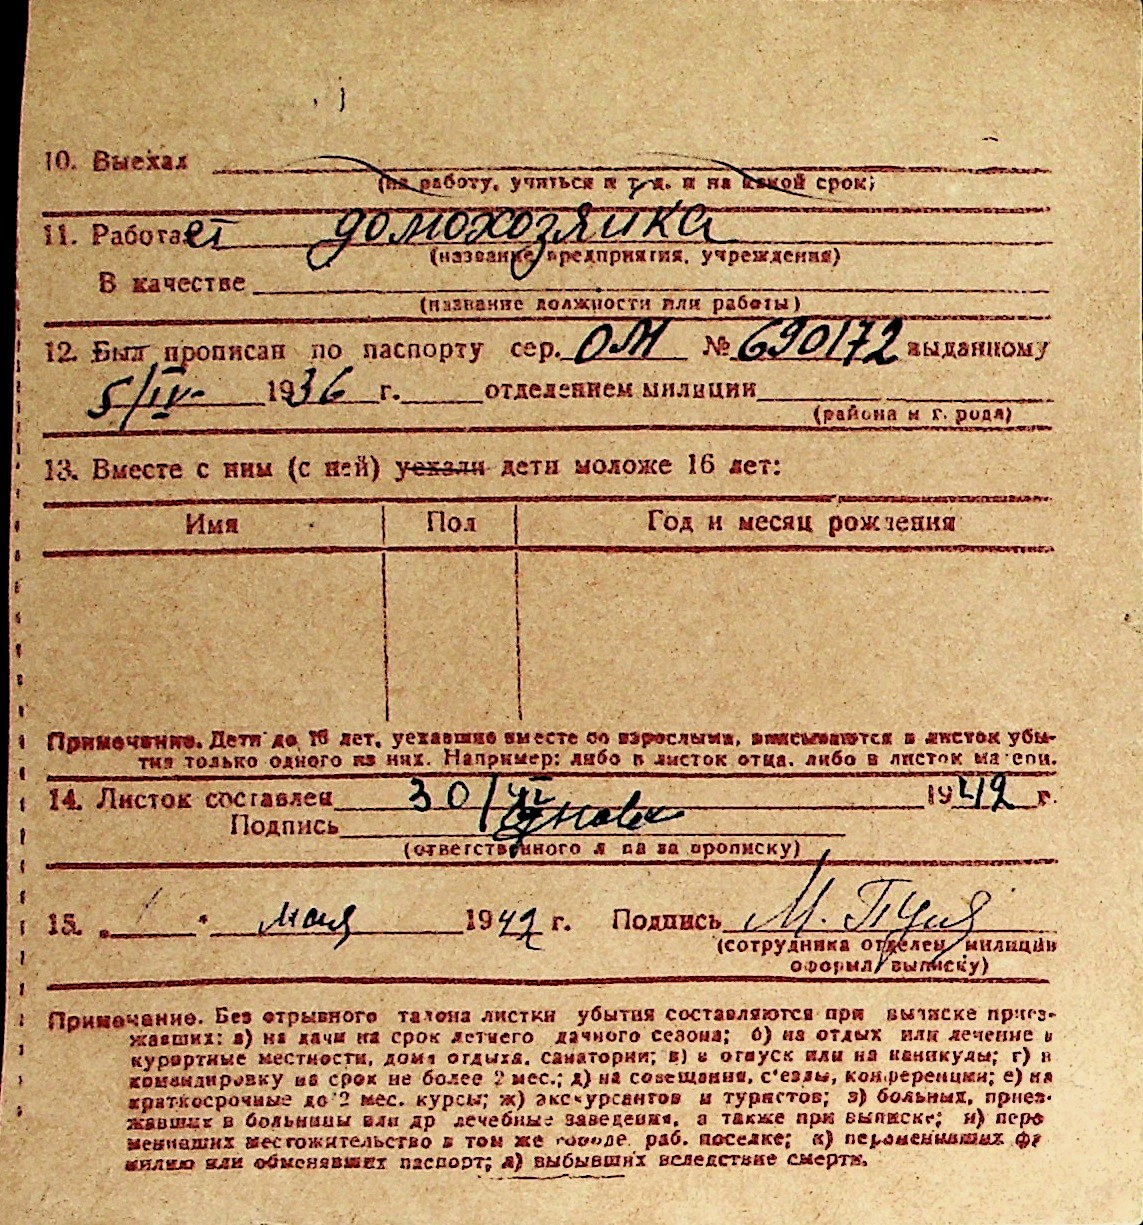 10. Выехал
(на работу, учиться и т. д. и на какой срок)
11. Работает домохозяйка
(название предприятия, учреждения)
В качестве
(название должности или работы)
12. Был прописан по паспорту сер. ОМ № 690172 выданному
5/IV- 1936 г. отделением милиции
(района и г. рода)
13. Вместе с ним (с ней) уехали дети моложе 16 лет:
Имя Пол Год и месяц рождения
Примечание. Дети до 16 лет, уехавшие вместе со взрослыми, вписываются в листок убы-
тия только одного из них. Например: либо в листок отца, либо в листок матери.
14. Листок составлен 30/VI 1942 г.
Подпись
(ответственного л ца за прописку)
15. „ “ мая 1942 г. Подпись М.
(сотрудника отделен. милиции
оформил. выписку)
Примечание. Без отрывного талона листки убытия составляются при выписке приез-
жавших: а) на дачи на срок летнего дачного сезона; б) на отдых или лечение в
курортные местности, дома отдыха, санатории; в) в отпуск или на каникулы; г) в
командировку на срок не более 2 мес.; д) на совещания, с'езды, конференции; е) на
краткосрочные до 2 мес. курсы; ж) экскурсантов и туристов; з) больных, приез-
жавших в больницы или др лечебные заведения, а также при выписке; и) пере
менивших местожительство в том же городе, раб. поселке; к) переменивших фа
милию или обменявших паспорт; л) выбывших вследствие смерти.